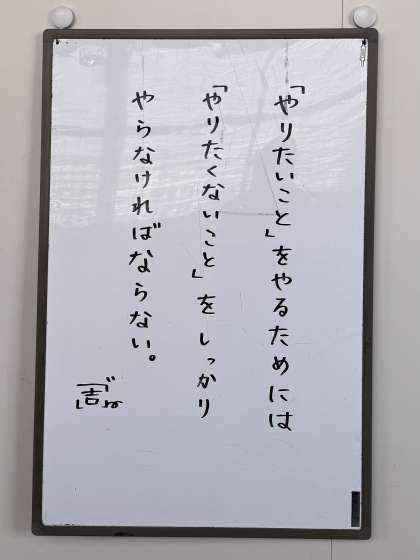 「やりたいこと」をやるためには
「やりたくないこと」をしっかり
やらなければならない。